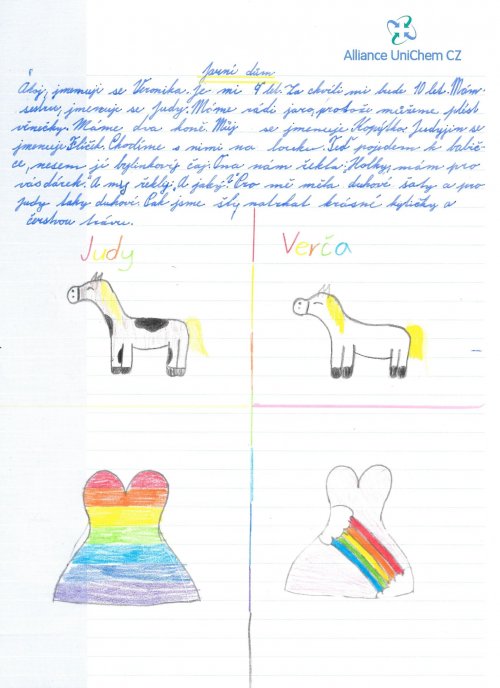 Alliance UniChem CZ
Jarní dům
"Ahoj, jmenuji se Veronika. Je mi 9 let. Za chvíli mi bude 10 let. Mám
sestru, jmenuje se Judy. Máme rádi jaro, protože můžeme plést
věnečky. Máme dva koně. Můj se jmenuje Kopýtko. Judyjin se
jmenuje Flíček. Chodíme s nimi na louku. Teď pojedem k babič-
ce, nesem jí bylinkový čaj. Ona nám řekla: Holky, mám pro
vás dárek." A my řekly: "A jaký?" Pro mě měla duhové šaty a pro
Judy taky duhové. Pak jsme šly natrhat krásné kytičky a
čerstvou trávu.
Judy
Verča